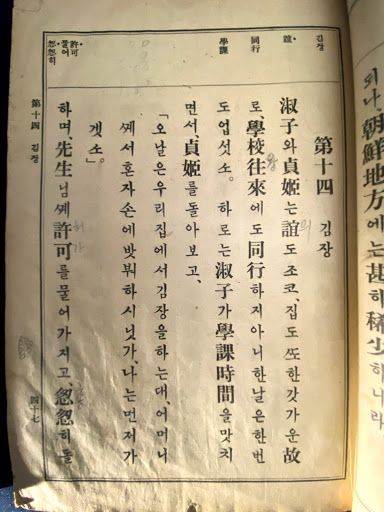 되나朝鮮地方에는甚히稀少하니라
김장
誼
同行
學課
許可
물어
怱怱히
第十四 김장
淑子와貞姬는誼도조코、집도ᄯᅩ한갓가운故
로學校往來에도同行하지아니한날은한번
도업섯소。 하로는淑子가學課時間을맛치
면서、貞姬를돌아보고、
「오날은우리집에서김장을하는대、어머니
ᄭᅦ서혼자손에밧뷔하시닛가、나는먼저가
겟소」。
하며、先生님ᄭᅦ許可를물어가지고、怱怱히돌
의
왕
허가
第十四 김장
四十七